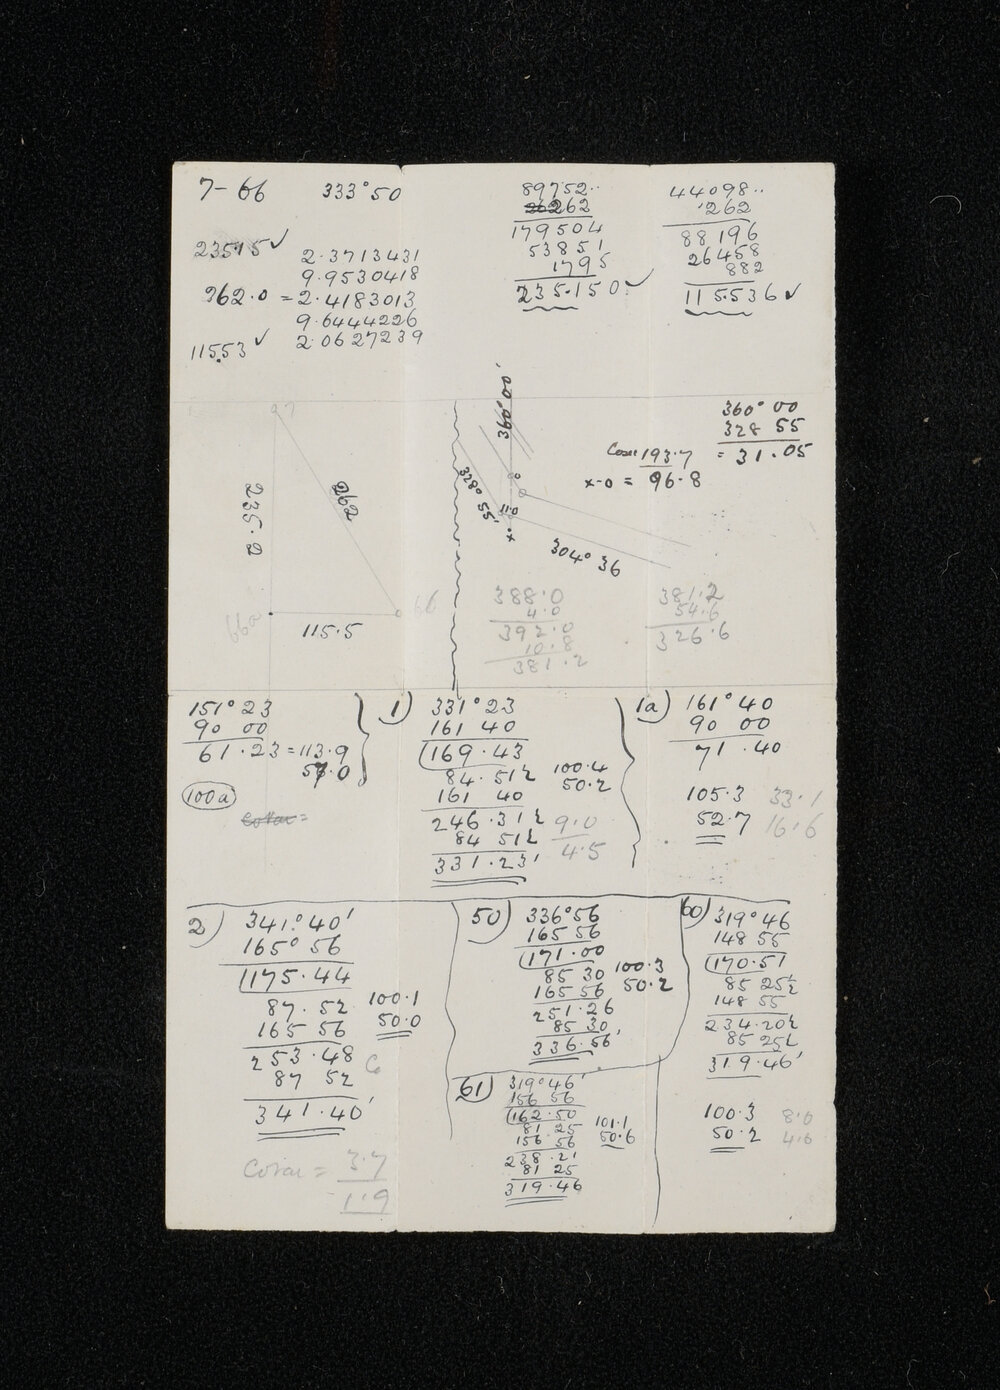 7-66 333°50
235.15 ✓ 2.3713431
9.9530418
262.0 = 2.4183013
9.6444226
115.53 ✓ 2.0627239
89752..
262
179504
53851
1795
235.150 ✓
44098..
262
88196
26458
882
115.536 ✓
97
235.2
262
66a
66
115.5
360° 00'
328° 55'
0
110
x
304° 36
360° 00
328 55
= 31.05
Cosec 193.7
x-0 = 96.8
388.0
4.0
392.0
10.8
381.2
381.2
54.6
326.6
151° 23
90 00
61.23 = 113.9
57.0
100a
Covar =
1) 331° 23
161 40
169.43
84.51½
161 40
246.31½
84 51½
331.23'
100.4
50.2
9.0
4.5
1a) 161° 40
90 00
71.40
105.3 33.1
52.7 16.6
2) 341° 40'
165° 56
175.44
87.52
165 56
253.48
87 52
341.40'
100.1
50.0
6
Covar = 3.7
1.9
50) 336° 56
165 56
171.00
85 30
165 56
251.26
85 30
336.56'
100.3
50.2
60) 319° 46
148 55
170.51
85 25½
148 55
234.20½
85 25½
319.46'
100.3 8.0
50.2 4.0
61) 319° 46'
156 56
162.50
81 25
156 56
238.21
81 25
319.46
101.1
50.6